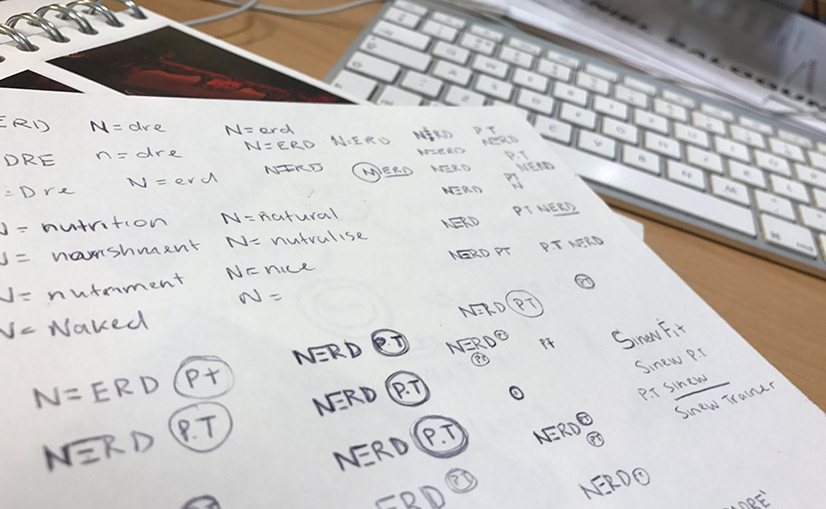 ERD N=dre N=erd
N=ERD N=ERD NERD P.T
NERD
DRE n=dre
NERD NERD NERD P.T
NERD
=Dre N=erd
NERD PT
N
N= nutrition N=natural NERD P.T NERD
N= nourishment N= nutralise NERD PT P.T NERD
N= nutrinment N=nice
N=
N= Naked
NERD PT PT
N=ERD Pt NERD P.T NERD PT PT Pt Sinew Fit
Sinew P.T
P.T Sinew
Sinew Trainer
NERD P.T NERD P.T
NERD P.T NERD PT PT
ERD PT NERD T